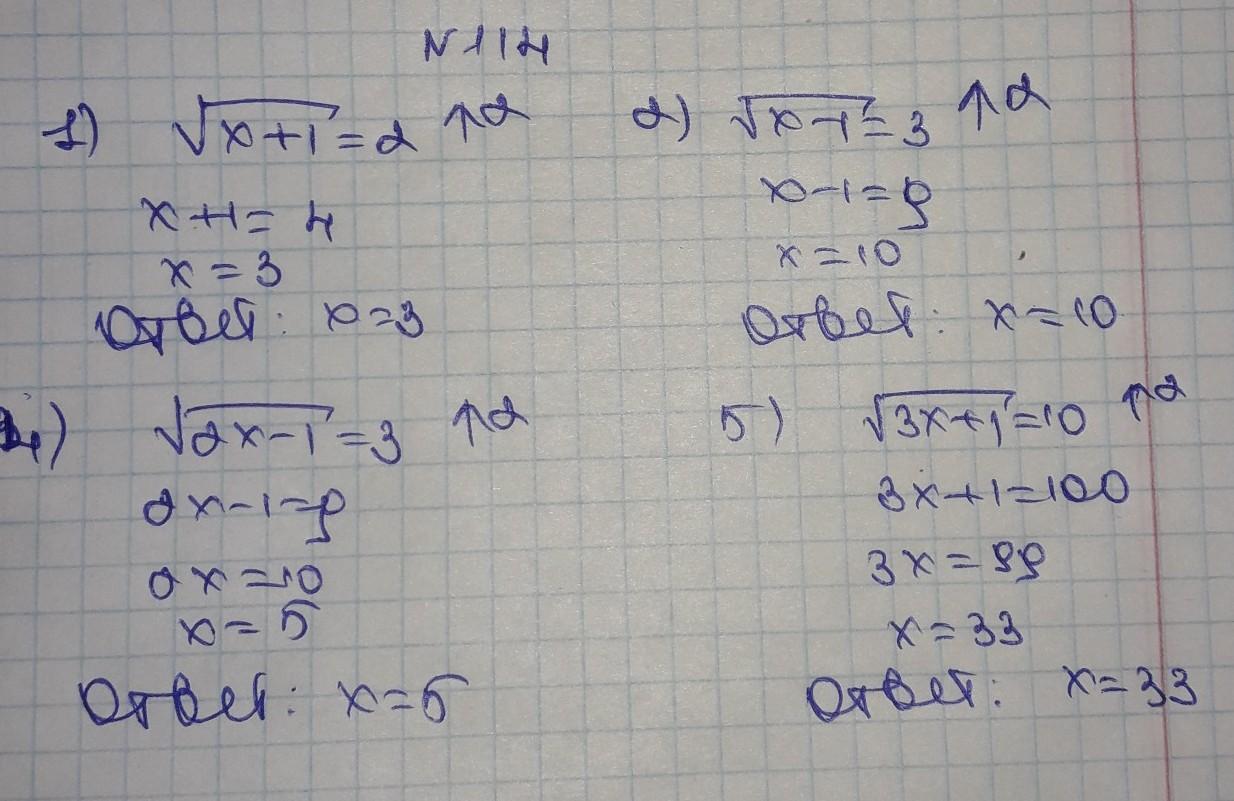 N 114
1) √x+1 = 2 ↑2
x+1 = 4
x = 3
Ответ: x=3
2) √x-1 = 3 ↑2
x-1=9
x=10
Ответ: x=10
4) √2x-1 = 3 ↑2
2x-1=9
2x=10
x=5
Ответ: x=5
5) √3x+1 = 10 ↑2
3x+1=100
3x=99
x=33
Ответ: x=33